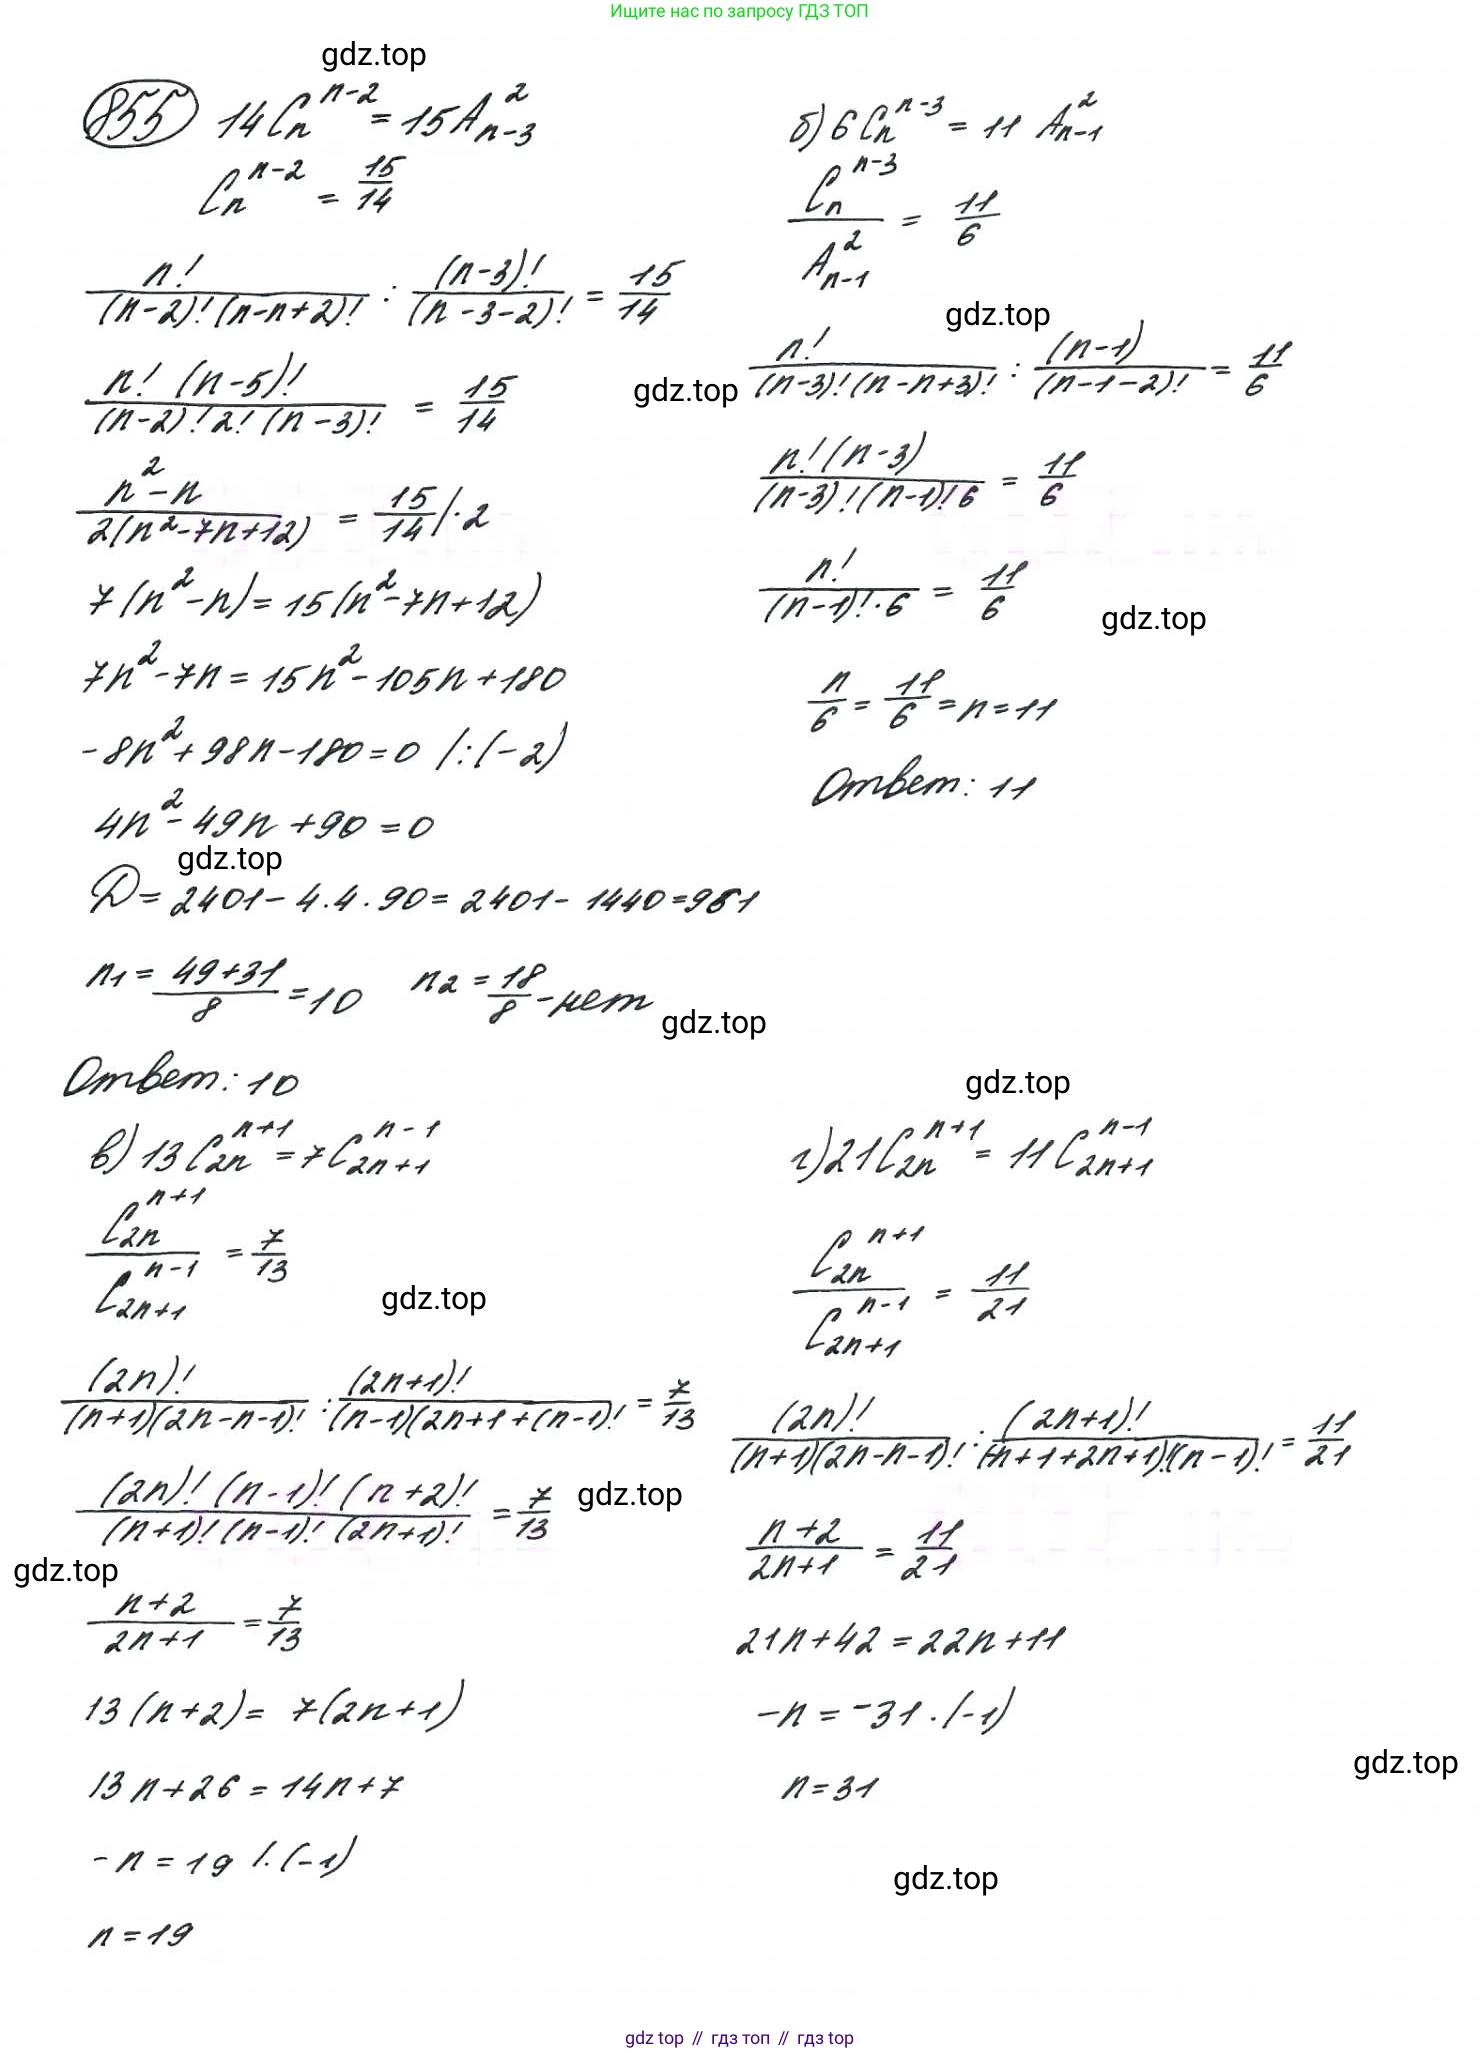 Ищите нас по запросу ГДЗ ТОП
gdz.top
855 14C_n^{n-2} = 15A_{n-3}^2
C_n^{n-2} = 15/14
n!/((n-2)!(n-n+2)!) : (n-3)!/((n-3-2)!) = 15/14
n! (n-5)!/((n-2)! 2! (n-3)!) = 15/14
gdz.top
(n^2-n)/(2(n^2-7n+12)) = 15/14 |·2
7(n^2-n) = 15(n^2-7n+12)
7n^2-7n = 15n^2-105n+180
-8n^2+98n-180=0 /:(-2)
4n^2-49n+90=0
gdz.top
D = 2401-4.4.90 = 2401-1440=961
n1 = (49+31)/8 = 10 n2 = 18/8 - нет
gdz.top
Ответ: 10
б) 6C_n^{n-3} = 11 A_{n-1}^2
C_n^{n-3}/A_{n-1}^2 = 11/6
gdz.top
n!/((n-3)!(n-n+3)!) : (n-1)/((n-1-2)!) = 11/6
n!(n-3)/((n-3)!(n-1)!6) = 11/6
n!/((n-1)!·6) = 11/6
gdz.top
n/6 = 11/6 = n=11
Ответ: 11
gdz.top
в) 13C_{2n}^{n+1} = 7C_{2n+1}^{n-1}
C_{2n}^{n+1}/C_{2n+1}^{n-1} = 7/13
gdz.top
(2n)!/((n+1)(2n-n-1)!) : (2n+1)!/((n-1)(2n+1+(n-1)!) = 7/13
(2n)! (n-1)! (n+2)!/((n+1)! (n-1)! (2n+1)!) = 7/13
gdz.top
gdz.top
(n+2)/(2n+1) = 7/13
13(n+2) = 7(2n+1)
13n+26 = 14n+7
-n = 19 /.(-1)
n = 19
г) 21C_{2n}^{n+1} = 11C_{2n+1}^{n-1}
C_{2n}^{n+1}/C_{2n+1}^{n-1} = 11/21
(2n)!/((n+1)(2n-n-1)!) : (2n+1)!/((-n+1+2n+1)!(n-1)!) = 11/21
(n+2)/(2n+1) = 11/21
21n+42 = 22n+11
-n = -31 .(-1)
gdz.top
n = 31
gdz.top
gdz top // гдз топ // гдз top